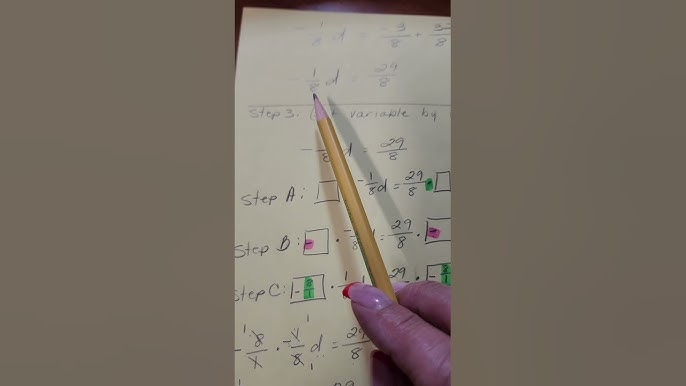 - 1/8 d = -3/8 + 32/8
- 1/8 d = 29/8
Step 3. variable by
- 1/8 d = 29/8
Step A: □ · -1/8 d = 29/8 · □
Step B: - · -1/8 d = 29/8 · -
Step C: -8/1 · 1/8 d = 29/8 · -8/1
-8/1 · -1/8 d = 29/8
29